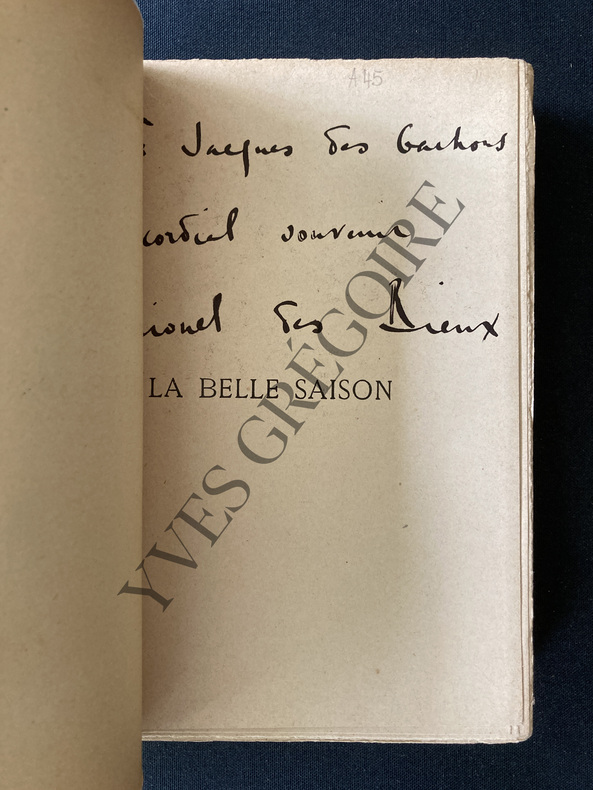 A45
à Jacques des Gachons
cordial souvenir
Lionel des Rieux
LA BELLE SAISON
YVES GRÉGOIRE